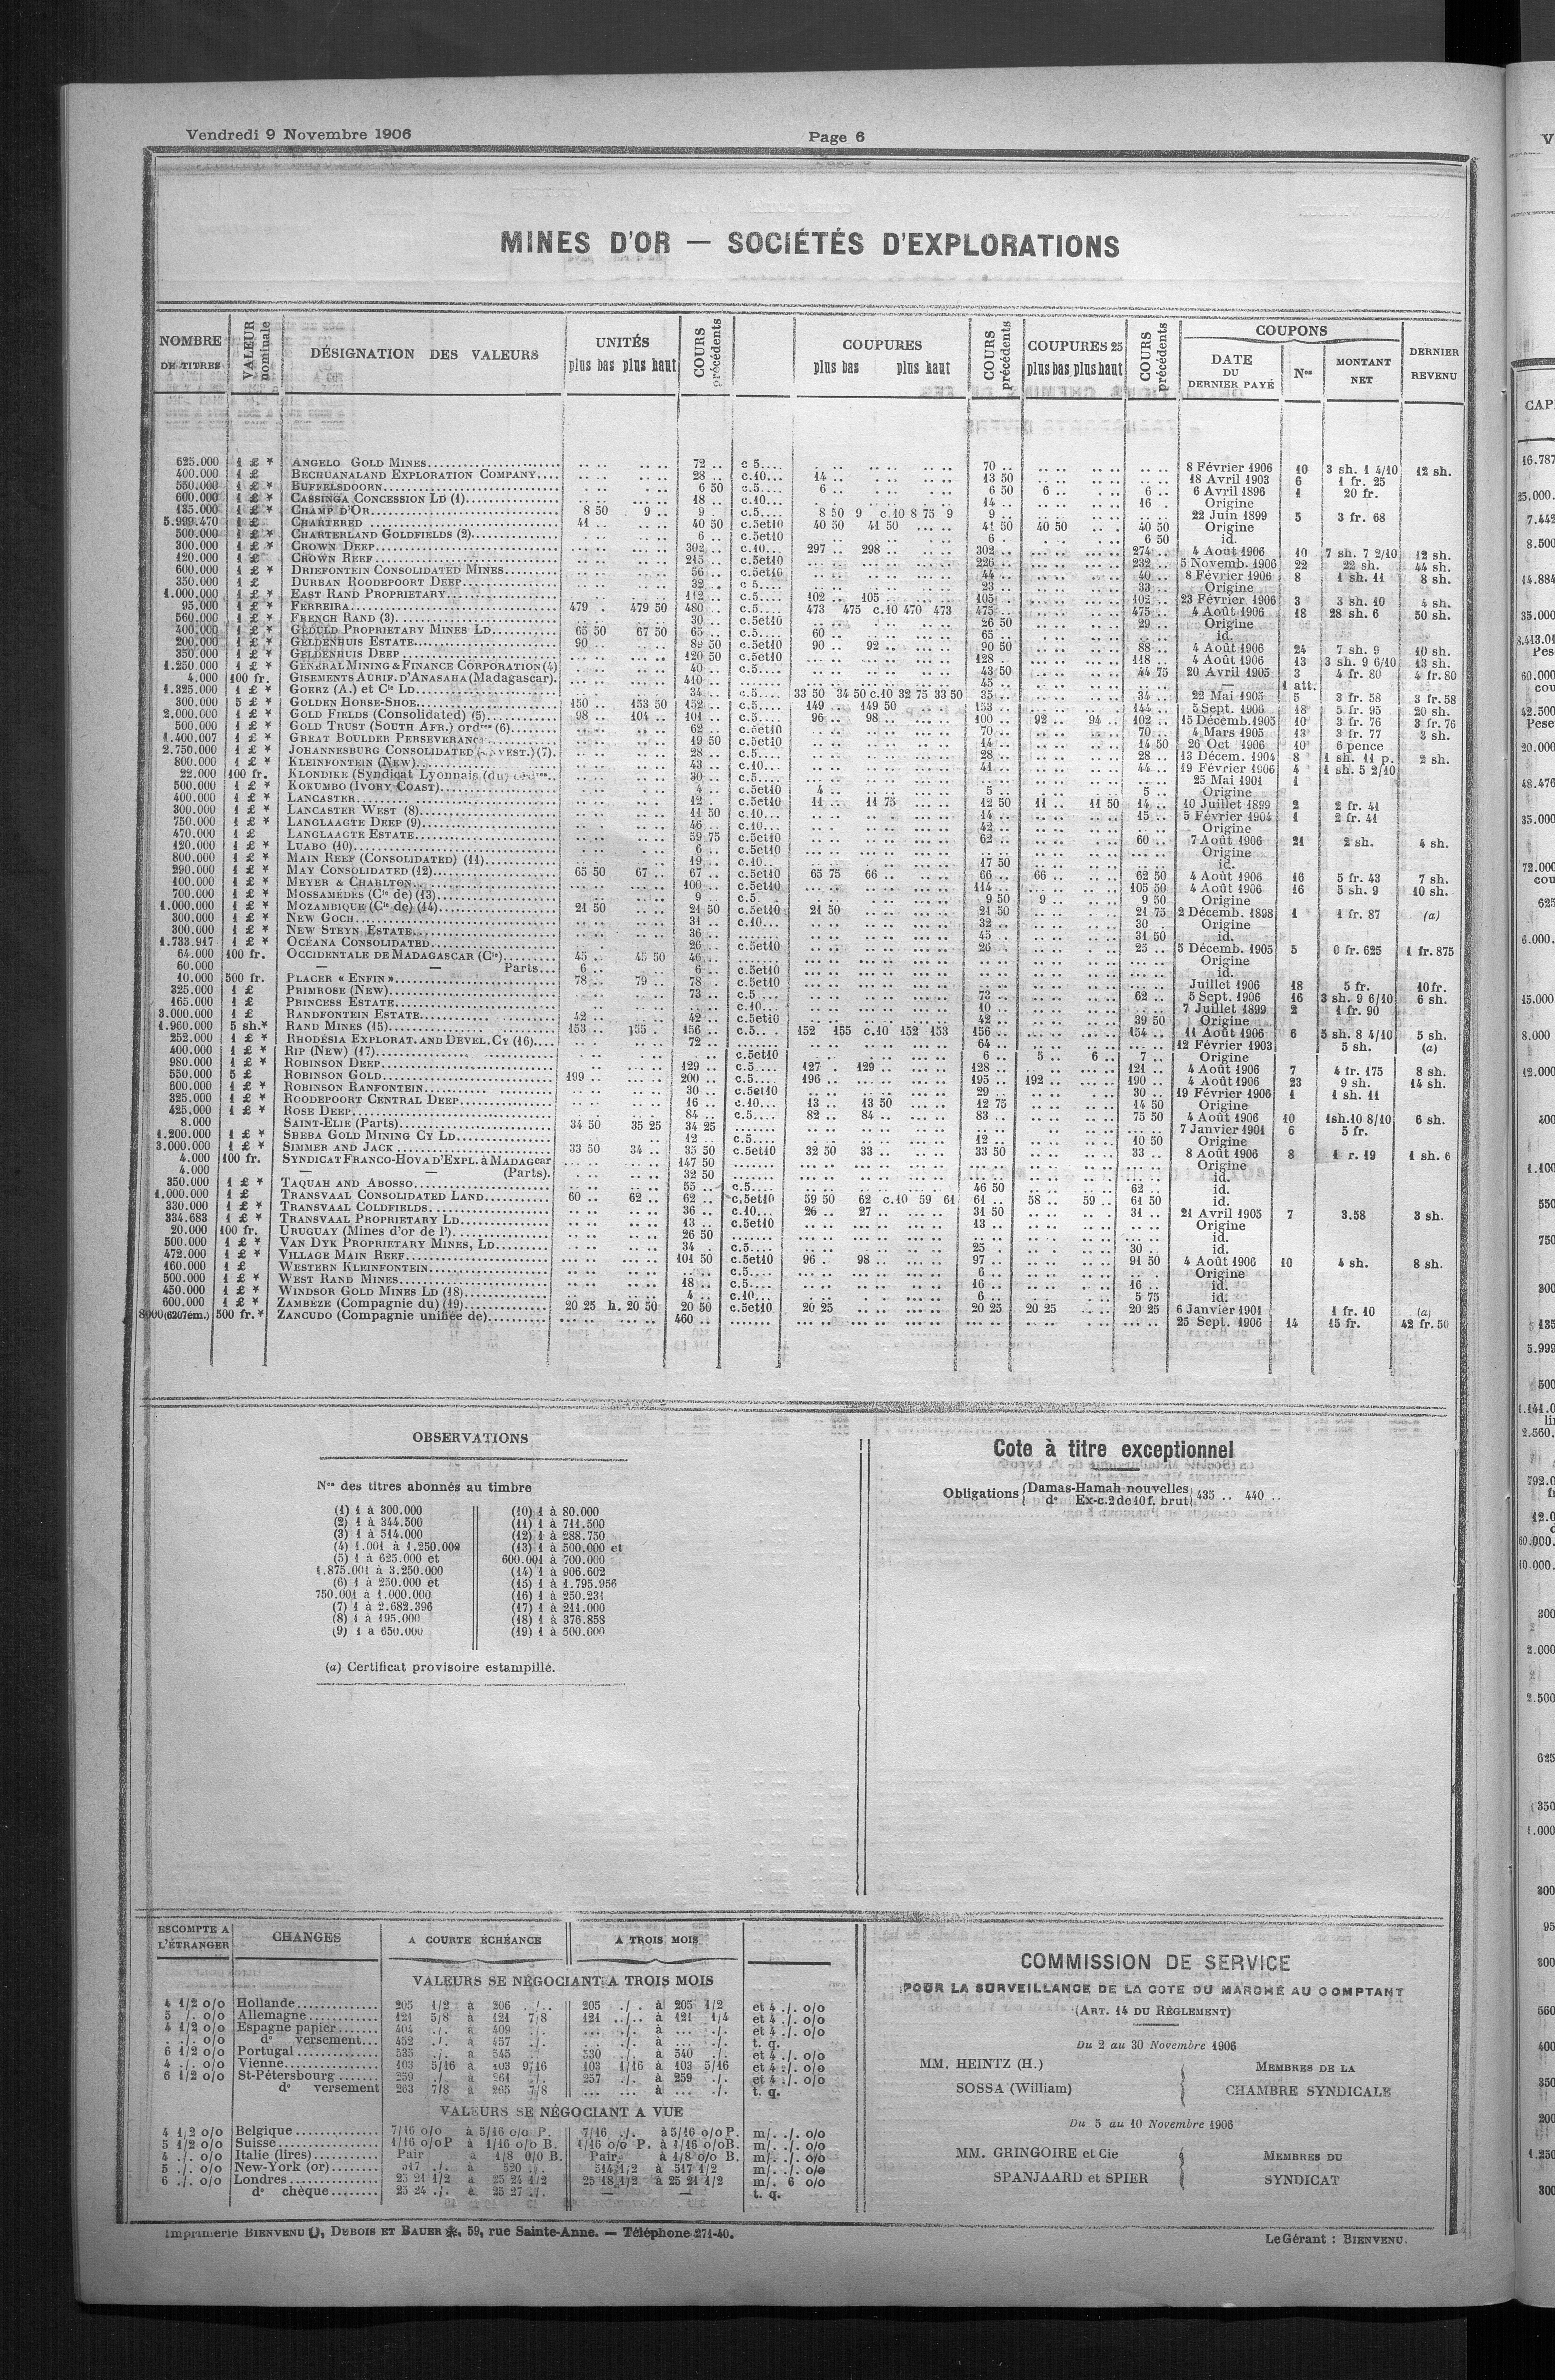 Vendredi 9 Novembre 1906
Page 6
MINES D'OR — SOCIÉTÉS D'EXPLORATIONS
NOMBRE DE TITRES | VALEUR nominale | DÉSIGNATION DES VALEURS | UNITÉS plus bas plus haut | COURS précédents | COUPURES plus bas plus haut | COURS précédents | COUPURES 25 plus bas plus haut | COURS précédents | COUPONS DATE DU DERNIER PAYÉ | Nos | MONTANT NET | DERNIER REVENU
625.000 1 £ * ANGELO GOLD MINES 72 .. c 5.... 70 .. 8 Février 1906 10 3 sh. 1 4/10 12 sh.
400.000 1 £ BECHUANALAND EXPLORATION COMPANY 28 .. c.10... 14 .. 13 50 18 Avril 1903 6 1 fr. 25
550.000 1 £ * BUFFELSDOORN 6 50 c.5.... 6 .. 6 50 6 .. 6 .. 6 Avril 1896 1 20 fr.
600.000 1 £ * CASSINGA CONCESSION LD (1) 18 .. c.10... 14 .. 16 .. Origine
135.000 1 £ * CHAMP D'OR 8 50 9 .. 9 .. c.5.... 8 50 9 c.10 8 75 9 9 .. 22 Juin 1899 5 3 fr. 68
5.999.470 1 £ CHARTERED 41 .. 40 50 c.5et10 40 50 41 50 41 50 40 50 40 50 Origine
500.000 1 £ * CHARTERLAND GOLDFIELDS (2) 6 .. c.5et10 6 . 6 50 id.
300.000 1 £ * CROWN DEEP 302 .. c.10... 297 .. 298 .. 302 .. 274 .. 4 Août 1906 10 7 sh. 7 2/10 12 sh.
120.000 1 £ CROWN REEF 215 .. c.5et10 226 .. 232 .. 5 Novemb. 1906 22 22 sh. 44 sh.
600.000 1 £ * DRIEFONTEIN CONSOLIDATED MINES 56 .. c.5et10 44 .. 40 .. 8 Février 1906 8 1 sh. 11 8 sh.
350.000 1 £ DURBAN ROODEPOORT DEEP 32 .. c 5.... 23 .. 33 .. Origine
1.000.000 1 £ * EAST RAND PROPRIETARY 112 .. c.5.... 102 .. 105 .. 105 .. 102 .. 23 Février 1906 3 3 sh. 10 4 sh.
95.000 1 £ * FERREIRA 479 . 479 50 480 .. c.5.... 473 475 c.10 470 473 475 .. 475 .. 4 Août 1906 18 28 sh. 6 50 sh.
560.000 1 £ * FRENCH RAND (3) 30 .. c.5et10 26 50 29 .. Origine
400.000 1 £ * GEDULD PROPRIETARY MINES LD 65 50 67 50 65 .. c.5.... 60 .. 65 .. id.
200.000 1 £ * GELDENHUIS ESTATE 90 .. 89 50 c.5et10 90 .. 92 .. 90 50 88 .. 4 Août 1906 24 7 sh. 9 10 sh.
350.000 1 £ * GELDENHUIS DEEP 120 50 c.5et10 128 .. 118 .. 4 Août 1906 13 3 sh. 9 6/10 13 sh.
1.250.000 1 £ * GENERAL MINING & FINANCE CORPORATION (4) 40 .. c.5.... 43 50 44 75 20 Avril 1905 3 4 fr. 80 4 fr. 80
4.000 100 fr. GISEMENTS AURIF. D'ANASAHA (Madagascar) 410 .. 45 .. — 1 att.
1.325.000 1 £ * GOERZ (A.) et Cie LD 34 .. c.5.... 33 50 34 50 c.10 32 75 33 50 35 .. 34 .. 22 Mai 1905 5 3 fr. 58 3 fr. 58
300.000 5 £ * GOLDEN HORSE-SHOE 150 .. 153 50 152 .. c.5.... 149 .. 149 50 153 .. 144 .. 5 Sept. 1906 18 5 fr. 95 20 sh.
2.000.000 1 £ * GOLD FIELDS (Consolidated) (5) 98 .. 104 .. 101 .. c.5.... 96 .. 98 .. 100 .. 92 .. 94 .. 102 .. 15 Décemb. 1905 10 3 fr. 76 3 fr. 76
500.000 1 £ * GOLD TRUST (SOUTH AFR.) ordres (6) 62 .. c.5et10 70 .. 70 .. 4 Mars 1905 13 3 fr. 77 3 sh.
1.400.007 1 £ * GREAT BOULDER PERSEVERANCE 19 50 c.5et10 14 .. 14 50 26 Oct 1906 10 6 pence
2.750.000 1 £ * JOHANNESBURG CONSOLIDATED (INVEST.) (7) 28 .. c.5.... 28 .. 28 .. 13 Décem. 1904 8 1 sh. 11 p. 2 sh.
800.000 1 £ * KLEINFONTEIN (New) 43 .. c.10... 41 .. 44 .. 19 Février 1906 4 1 sh. 5 2/10
22.000 100 fr. KLONDIKE (Syndicat Lyonnais (du) ordres 30 .. c.5.... 25 Mai 1901 1
500.000 1 £ * KOKUMBO (IVORY COAST) 4 .. c.5et10 4 .. 5 .. 5 .. Origine
400.000 1 £ * LANCASTER 12 .. c.5et10 11 .. 11 75 12 50 11 .. 11 50 14 .. 10 Juillet 1899 2 2 fr. 41
300.000 1 £ * LANCASTER WEST (8) 11 50 c.10... 14 .. 15 .. 5 Février 1904 1 2 fr. 41
750.000 1 £ * LANGLAAGTE DEEP (9) 46 .. c.10... 42 .. Origine
470.000 1 £ LANGLAAGTE ESTATE 59 75 c.5et10 62 .. 60 .. 7 Août 1906 21 2 sh. 4 sh.
120.000 1 £ * LUABO (10) 6 .. c.5et10 Origine
800.000 1 £ * MAIN REEF (CONSOLIDATED) (11) 19 .. c.10.. 17 50 id.
290.000 1 £ * MAY CONSOLIDATED (12) 65 50 67 .. 67 .. c.5et10 65 75 66 .. 66 .. 66 .. 62 50 4 Août 1906 16 5 fr. 43 7 sh.
100.000 1 £ * MEYER & CHARLTON 100 .. c.5et10 114 .. 105 50 4 Août 1906 16 5 sh. 9 10 sh.
700.000 1 £ * MOSSAMÉDÈS (Cie de) (13) 9 .. c.5 9 50 9 .. 9 50 Origine
1.000.000 1 £ * MOZAMBIQUE (Cie de) (14) 21 50 21 50 c.5et10 21 50 21 50 21 75 2 Décemb. 1898 1 1 fr. 87 (a)
300.000 1 £ * NEW GOCH 31 .. c.10... 32 .. 30 . Origine
300.000 1 £ * NEW STEYN ESTATE 36 .. 45 .. 31 50 id.
1.733.917 1 £ * OCEANA CONSOLIDATED 26 .. c.5et10 26 .. 25 .. 5 Décemb. 1905 5 0 fr. 625 1 fr. 875
64.000 100 fr. OCCIDENTALE DE MADAGASCAR (Cie) 45 .. 45 50 46 .. Origine
60.000 — — Parts 6 .. 6 .. c.5et10 id.
10.000 500 fr. PLACER « ENFIN » 78 .. 79 .. 78 . c.5et10 Juillet 1906 18 5 fr. 10 fr.
325.000 1 £ PRIMROSE (NEW) 73 .. c.5.... 73 .. 62 .. 5 Sept. 1906 16 3 sh. 9 6/10 6 sh.
165.000 1 £ PRINCESS ESTATE c.10... 10 .. 7 Juillet 1899 2 1 fr. 90
3.000.000 1 £ RANDFONTEIN ESTATE 42 .. 42 .. c.5et10 42 .. 39 50 Origine
1.960.000 5 sh.* RAND MINES (15) 153 .. 155 .. 156 .. c.5.. . 152 155 c.10 152 153 156 .. 154 .. 11 Août 1906 6 5 sh. 8 4/10 5 sh.
252.000 1 £ * RHODESIA EXPLORAT. AND DEVEL. CY (16) 72 .. 64 .. 12 Février 1903 5 sh. (a)
400.000 1 £ * RIP (NEW) (17) c.5et10 6 .. 5 .. 6 .. 7 .. Origine
980.000 1 £ * ROBINSON DEEP 129 .. c.5.... 127 . 129 .. 128 .. 121 .. 4 Août 1906 7 4 fr. 175 8 sh.
550.000 5 £ ROBINSON GOLD 199 .. 200 .. c.5.... 196 .. 195 .. 192 .. 190 .. 4 Août 1906 23 9 sh. 14 sh.
600.000 1 £ * ROBINSON RANFONTEIN 30 .. c.5et10 29 .. 30 .. 19 Février 1906 1 1 sh. 11
325.000 1 £ * ROODEPOORT CENTRAL DEEP 16 .. c.10... 13 .. 13 50 12 75 14 50 Origine
425.000 1 £ * ROSE DEEP 84 .. c.5.... 82 .. 84 .. 83 .. 75 50 4 Août 1906 10 1sh.10 8/10 6 sh.
8.000 SAINT-ELIE (Parts) 34 50 35 25 34 25 7 Janvier 1901 6 5 fr.
1.200.000 1 £ * SHEBA GOLD MINING CY LD 12 .. c.5.... 12 .. 10 50 Origine
3.000.000 1 £ * SIMMER AND JACK 33 50 34 .. 35 50 c.5et10 32 50 33 .. 33 50 33 .. 8 Août 1906 8 1 r. 19 1 sh. 6
4.000 100 fr. SYNDICAT FRANCO-HOVA D'EXPL. à MADAGcar 147 50 Origine
4.000 — — (Parts). 32 50 id.
350.000 1 £ * TAQUAH AND ABOSSO 55 .. c.5.... 46 50 62 .. id.
1.000.000 1 £ TRANSVAAL CONSOLIDATED LAND 60 .. 62 .. 62 .. c.5et10 59 50 62 c.10 59 61 61 .. 58 .. 59 .. 61 50 id.
330.000 1 £ * TRANSVAAL COLDFIELDS 36 .. c.10... 26 .. 27 .. 31 50 31 .. 21 Avril 1905 7 3.58 3 sh.
334.683 1 £ * TRANSVAAL PROPRIETARY LD 13 .. c.5et10 13 .. Origine
20.000 100 fr. URUGUAY (Mines d'or de l') 26 50 id.
500.000 1 £ * VAN DYK PROPRIETARY MINES, LD 34 . c.5.... 25 . 30 .. id.
472.000 1 £ * VILLAGE MAIN REEF 101 50 c.5et10 96 . 98 .. 97 .. 91 50 4 Août 1906 10 4 sh. 8 sh.
160.000 1 £ WESTERN KLEINFONTEIN c.5.... 6 .. Origine
500.000 1 £ * WEST RAND MINES 18 .. c.5.... 16 .. 16 .. id.
450.000 1 £ * WINDSOR GOLD MINES LD (18) 4 .. c.10... 6 .. 5 75 id.
600.000 1 £ * ZAMBÈZE (Compagnie du) (19) 20 25 h. 20 50 20 50 c.5et10 20 25 20 25 20 25 20 25 6 Janvier 1901 1 fr. 10 (a)
8000(6207ém.) 500 fr.* ZANCUDO (Compagnie unifiée de) 460 .. 25 Sept. 1906 14 15 fr. 42 fr. 50
OBSERVATIONS
Nos des titres abonnés au timbre
(1) 1 à 300.000
(2) 1 à 344.500
(3) 1 à 514.000
(4) 1.001 à 1.250.000
(5) 1 à 625.000 et
1.875.001 à 3.250.000
(6) 1 à 250.000 et
750.001 à 1.000.000
(7) 1 à 2.682.396
(8) 1 à 195.000
(9) 1 à 650.000
(10) 1 à 80.000
(11) 1 à 711.500
(12) 1 à 288.750
(13) 1 à 500.000 et
600.001 à 700.000
(14) 1 à 906.602
(15) 1 à 1.795.956
(16) 1 à 250.231
(17) 1 à 211.000
(18) 1 à 376.858
(19) 1 à 500.000
(a) Certificat provisoire estampillé.
Cote à titre exceptionnel
Obligations { Damas-Hamah nouvelles
do Ex-c.2 de 10 f. brut } 435 .. 440 ..
ESCOMPTE A L'ÉTRANGER | CHANGES | A COURTE ÉCHÉANCE | A TROIS MOIS
VALEURS SE NÉGOCIANT A TROIS MOIS
4 1/2 o/o Hollande 205 1/2 à 206 ./. 205 ./. à 205 1/2 et 4 ./. o/o
5 ./. o/o Allemagne 121 5/8 à 121 7/8 121 ../.. à 121 1/4 et 4 ./. o/o
4 1/2 o/o Espagne papier 404 ./. à 409 ./. ... ./. à ... ./. et 4 ./. o/o
. ./. o/o do versement 452 ./. à 457 ./. ... ./. à ... ./. t. q.
6 1/2 o/o Portugal 535 ./. à 545 530 ./. à 540 ./. et 4 ./. o/o
4 ./. o/o Vienne 103 5/16 à 103 9/16 103 1/16 à 103 5/16 et 4 ./. o/o
6 1/2 o/o St-Pétersbourg 259 ./. à 261 ./. 257 ./. à 259 ./. et 4 ./. o/o
do versement 263 7/8 à 265 7/8 ... ... à ... ./. t. q.
VALEURS SE NÉGOCIANT A VUE
4 1/2 o/o Belgique 7/16 o/o à 5/16 o/o P. 7/16 ./. à 5/16 o/o P. m/. ./. o/o
5 1/2 o/o Suisse 1/16 o/o P à 1/16 o/o B. 1/16 o/o P. à 1/16 o/o B. m/. ./. o/o
4 ./. o/o Italie (lires) Pair à 1/8 0/0 B. Pair. à 1/8 o/o B. m/. ./. o/o
5 ./. o/o New-York (or) 517 ./. à 520 ./. 514 1/2 à 517 1/2 m/. ./. o/o
6 ./. o/o Londres 25 21 1/2 à 25 24 1/2 25 18 1/2 à 25 21 1/2 m/. 6 o/o
do chèque 25 24 ./. à 25 27 ./. — — t. q.
COMMISSION DE SERVICE
POUR LA SURVEILLANCE DE LA COTE DU MARCHÉ AU COMPTANT
(ART. 14 DU RÈGLEMENT)
Du 2 au 30 Novembre 1906
MM. HEINTZ (H.)
SOSSA (William)
MEMBRES DE LA
CHAMBRE SYNDICALE
Du 5 au 10 Novembre 1906
MM. GRINGOIRE et Cie
SPANJAARD et SPIER
MEMBRES DU
SYNDICAT
Imprimerie BIENVENU, DUBOIS ET BAUER, 59, rue Sainte-Anne. — Téléphone 271-40.
Le Gérant : BIENVENU.